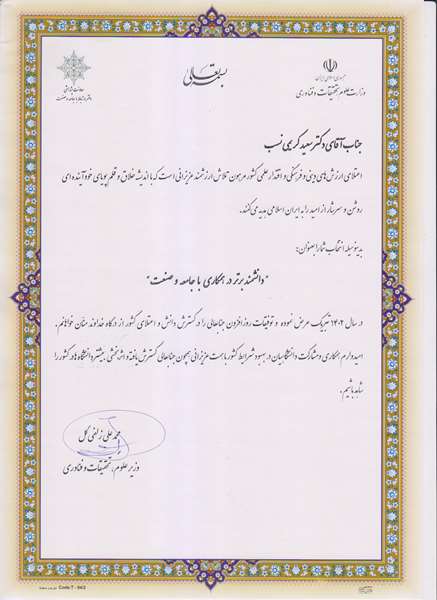 بسمه تعالی
جمهوری اسلامی ایران
وزارت علوم، تحقیقات و فناوری
معاونت پژوهشی
دفتر ارتباط با جامعه و صنعت
جناب آقای دکتر سعید کریمی نسب
اعتلای ارزش‌های دینی و فرهنگی و اقتدار علمی کشور مرهون تلاش ارزشمند عزیزانی است که با اندیشه خلاق و قلم پویای خود آینده ای
روشن و سرشار از امید را به ایران اسلامی هدیه می کنند.
بدینوسیله انتخاب شما را بعنوان:
"دانشمند برتر در همکاری با جامعه و صنعت"
در سال ۱۴۰۲ تبریک عرض نموده و توفیقات روزافزون جنابعالی را در گسترش دانش و اعتلای کشور از درگاه خداوند منان خواهانم.
امیدوارم همکاری و مشارکت دانشگاهیان در بهبود شرایط کشور با همت عزیزانی همچون جنابعالی گسترش یافته و اثربخشی بیشتر دانشگاه‌ها در کشور را
شاهد باشیم.
محمد علی زلفی گل
وزیر علوم، تحقیقات و فناوری
Code:T - 94/2